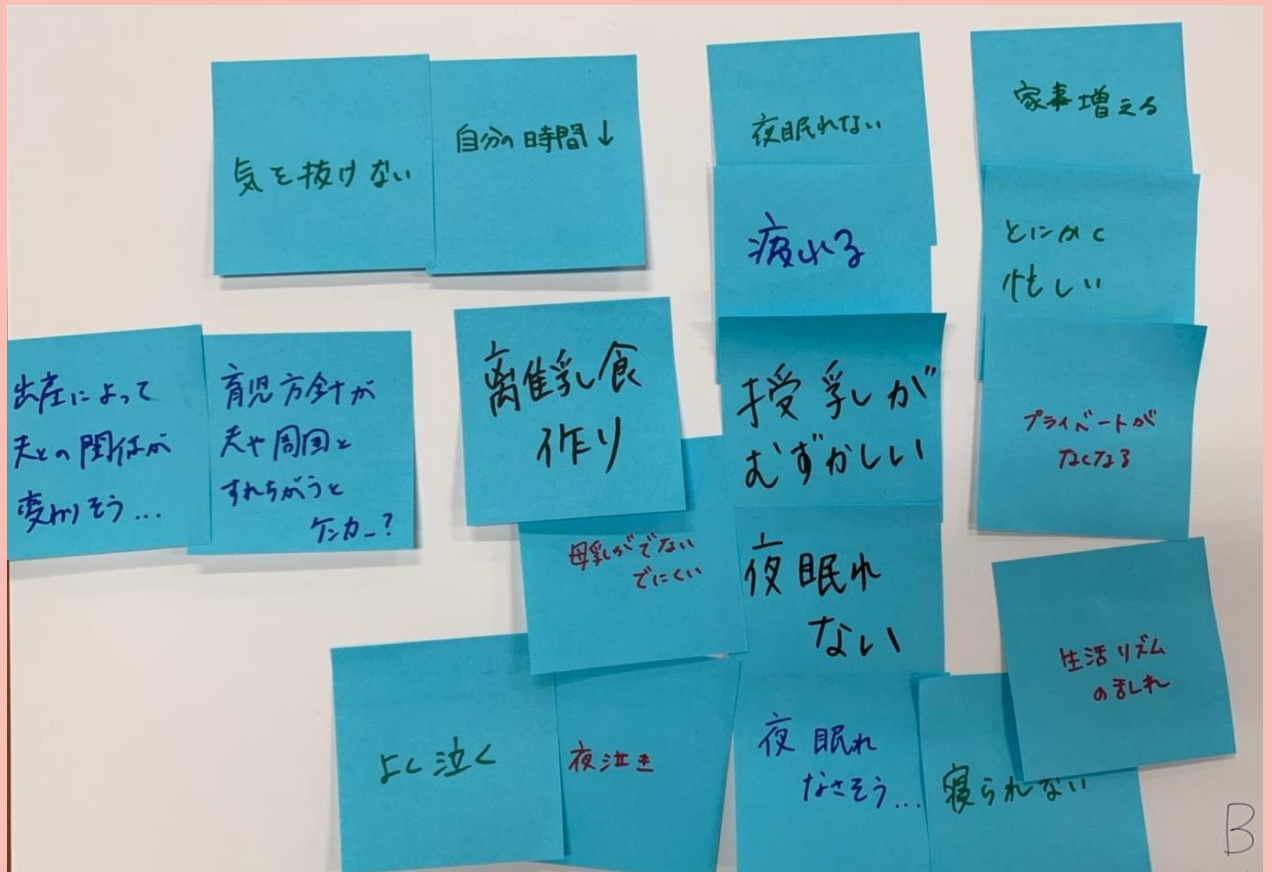 気を抜けない
自分の時間↓
夜眠れない
家事増える
疲れる
とにかく
忙しい
出産によって
夫との関係が
変わりそう...
育児方針が
夫や周囲と
すれちがうと
ケンカ_?
離乳食
作り
授乳が
むずかしい
プライベートが
なくなる
母乳がでない
でにくい
夜眠れ
ない
生活リズム
の乱れ
よく泣く
夜泣き
夜眠れ
なさそう...
寝られない
B